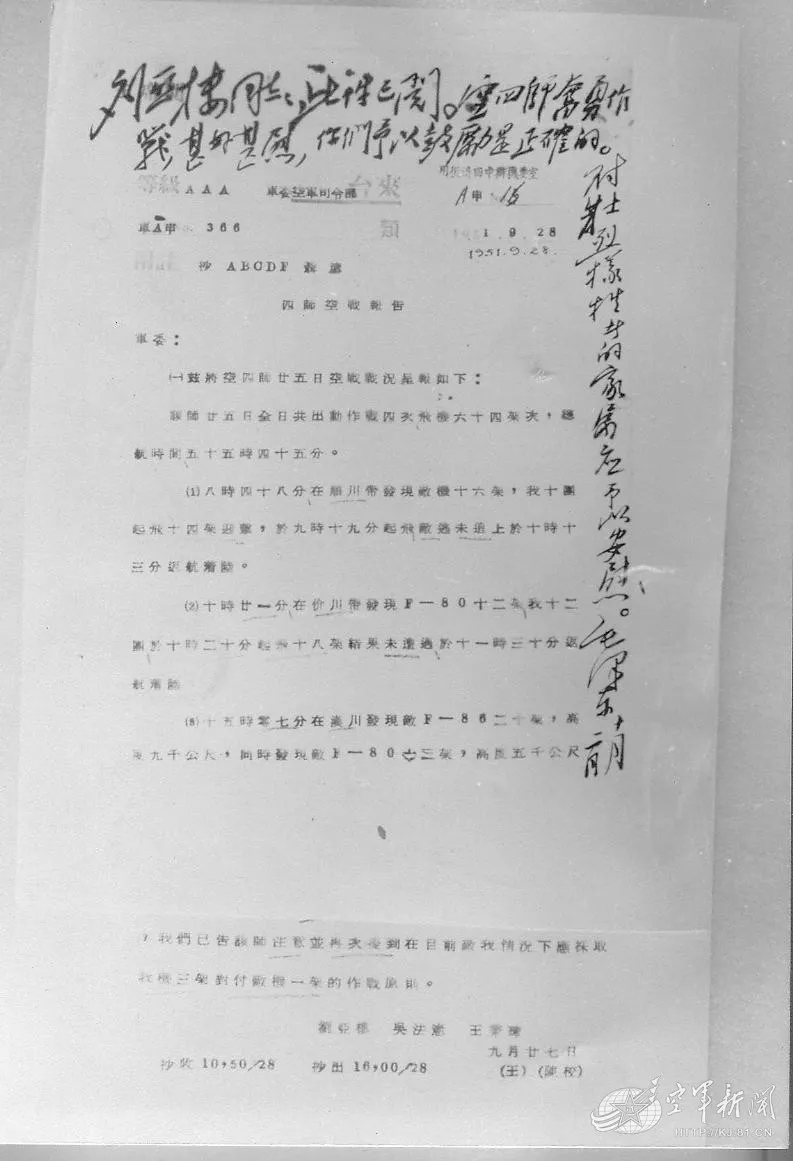 刘亚楼同志:此件已閱。空四師奮勇作
戰,甚好甚慰,你們予以鼓勵是正確的。
對壯烈犧牲者的家屬應予以安慰。毛澤東 十月二日
來台
AAA 軍委空軍司令部 A申 15
軍A申 366 1.9.28
1951.9.28.
抄 ABCDF
四師空戰報告
軍委:
㈠茲將空四師廿五日空戰戰況呈報如下:
該師廿五日全日共出動作戰四次飛機六十四架次,總
航時間五十五時四十五分。
⑴八時四十八分在順川帶發現敵機十六架,我十團
起飛十四架迎擊,於九時十九分起飛敵逃未追上於十時十
三分返航着陸。
⑵十時廿一分在价川帶發現F-80十二架我十二
團於十時二十分起飛十八架結果未遭遇於十一時三十分返
航着陸
⑶十五時零七分在漢川發現敵F-86二十架,高
度九千公尺,同時發現敵F-80 三架,高度五千公尺
,我們已告該師注意並再次提到在目前敵我情況下應採取
我機三架對付敵機一架的作戰原則。
劉亞樓 吳法憲 王秉璋
九月廿七日
抄收10,50/28 抄出16,00/28 (王)(陳校)
空軍新聞
HTTP://KJ.81.CN